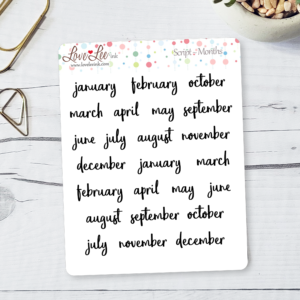 Love Lee ink
www.loveleeink.com
Script - Months
january february october
march april may september
june july august november
december january march
february april may june
august september october
july november december